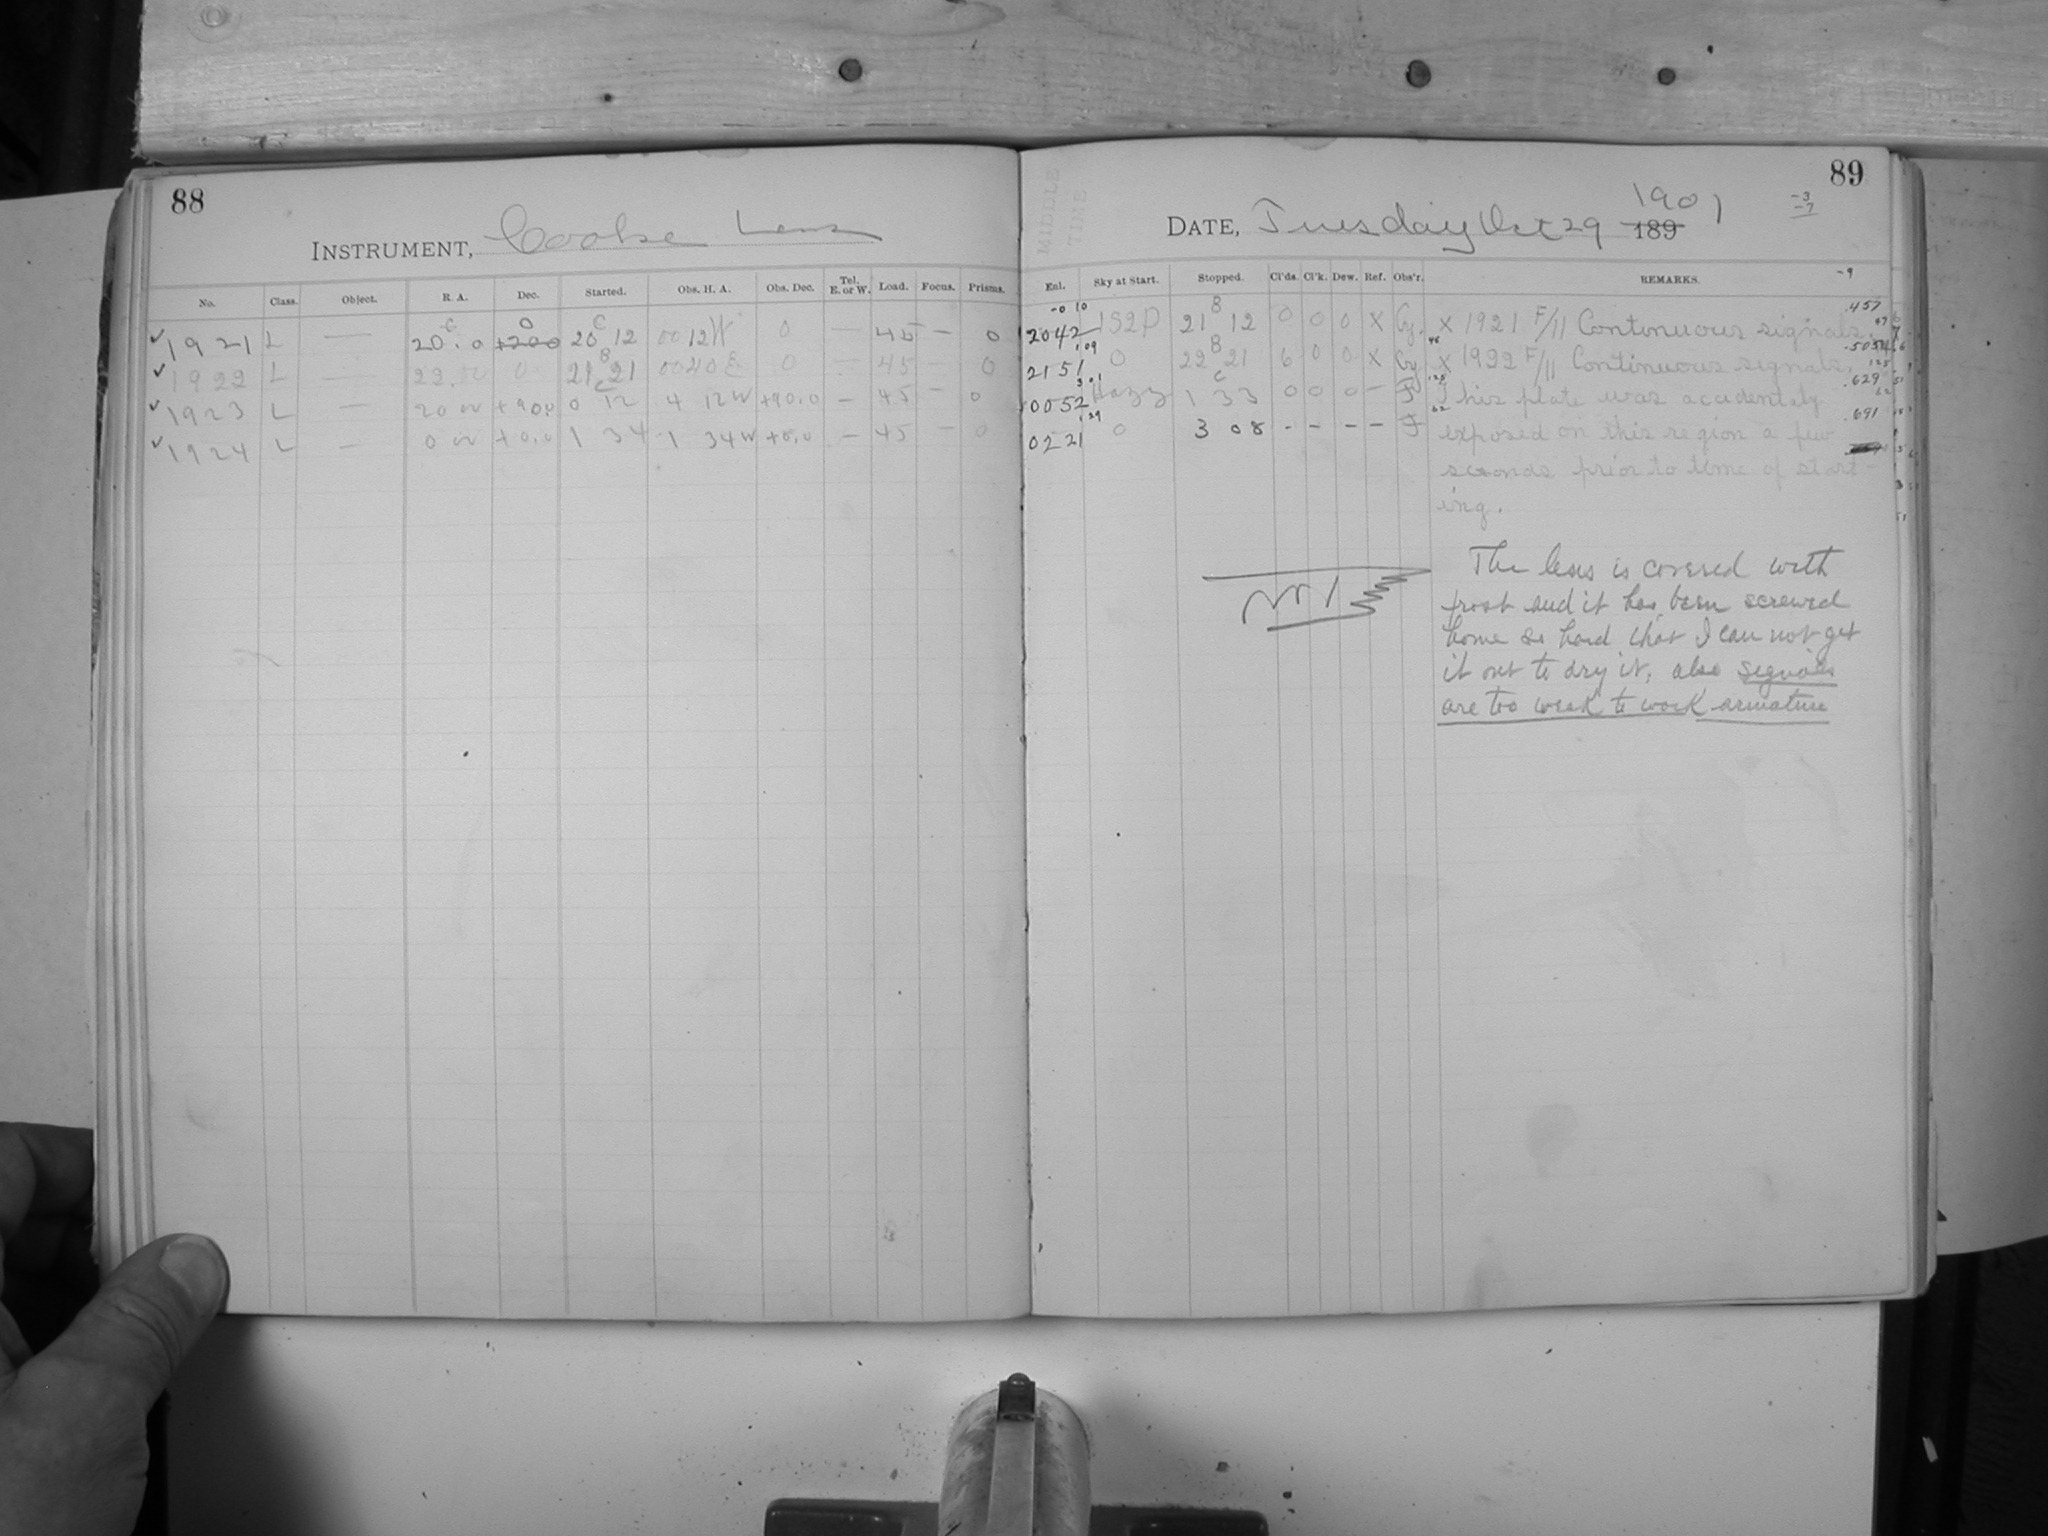 88
INSTRUMENT, Cooke Lens
No. Class. Object. R. A. Dec. Started. Obs. H. A. Obs. Dec. Tel. E. or W. Load. Focus. Prisms.
1921 L — 20.0 +20.0 20 12 00 12 W 0 — 45 — 0
1922 L — 22.00 0 21 21 00 40 E 0 — 45 — 0
1923 L — 20 00 +90.0 0 12 4 12 W +90.0 — 45 — 0
1924 L — 0 00 +0.0 1 34 1 34 W +0.0 — 45 — 0
89
MIDDLE TIME
DATE, Tuesday Oct 29 1901 189
-3
-7
Enl. Sky at Start. Stopped. Cl'ds. Cl'k. Dew. Ref. Obs'r. REMARKS. -9
2042 1S2P 21 12 0 0 0 X Cy. X 1921 F/11 Continuous signals. .457
2151 0 22 21 6 0 0 X Cy X 1922 F/11 Continuous signals.
0052 Hazy 1 33 0 0 0 — F This plate was accidently .629
0221 0 3 08 - - - - F exposed on this region a few .691
seconds prior to time of start-
ing.
The lens is covered with
frost and it has been screwed
home so hard that I can not get
it out to dry it, also signals
are too weak to work armature